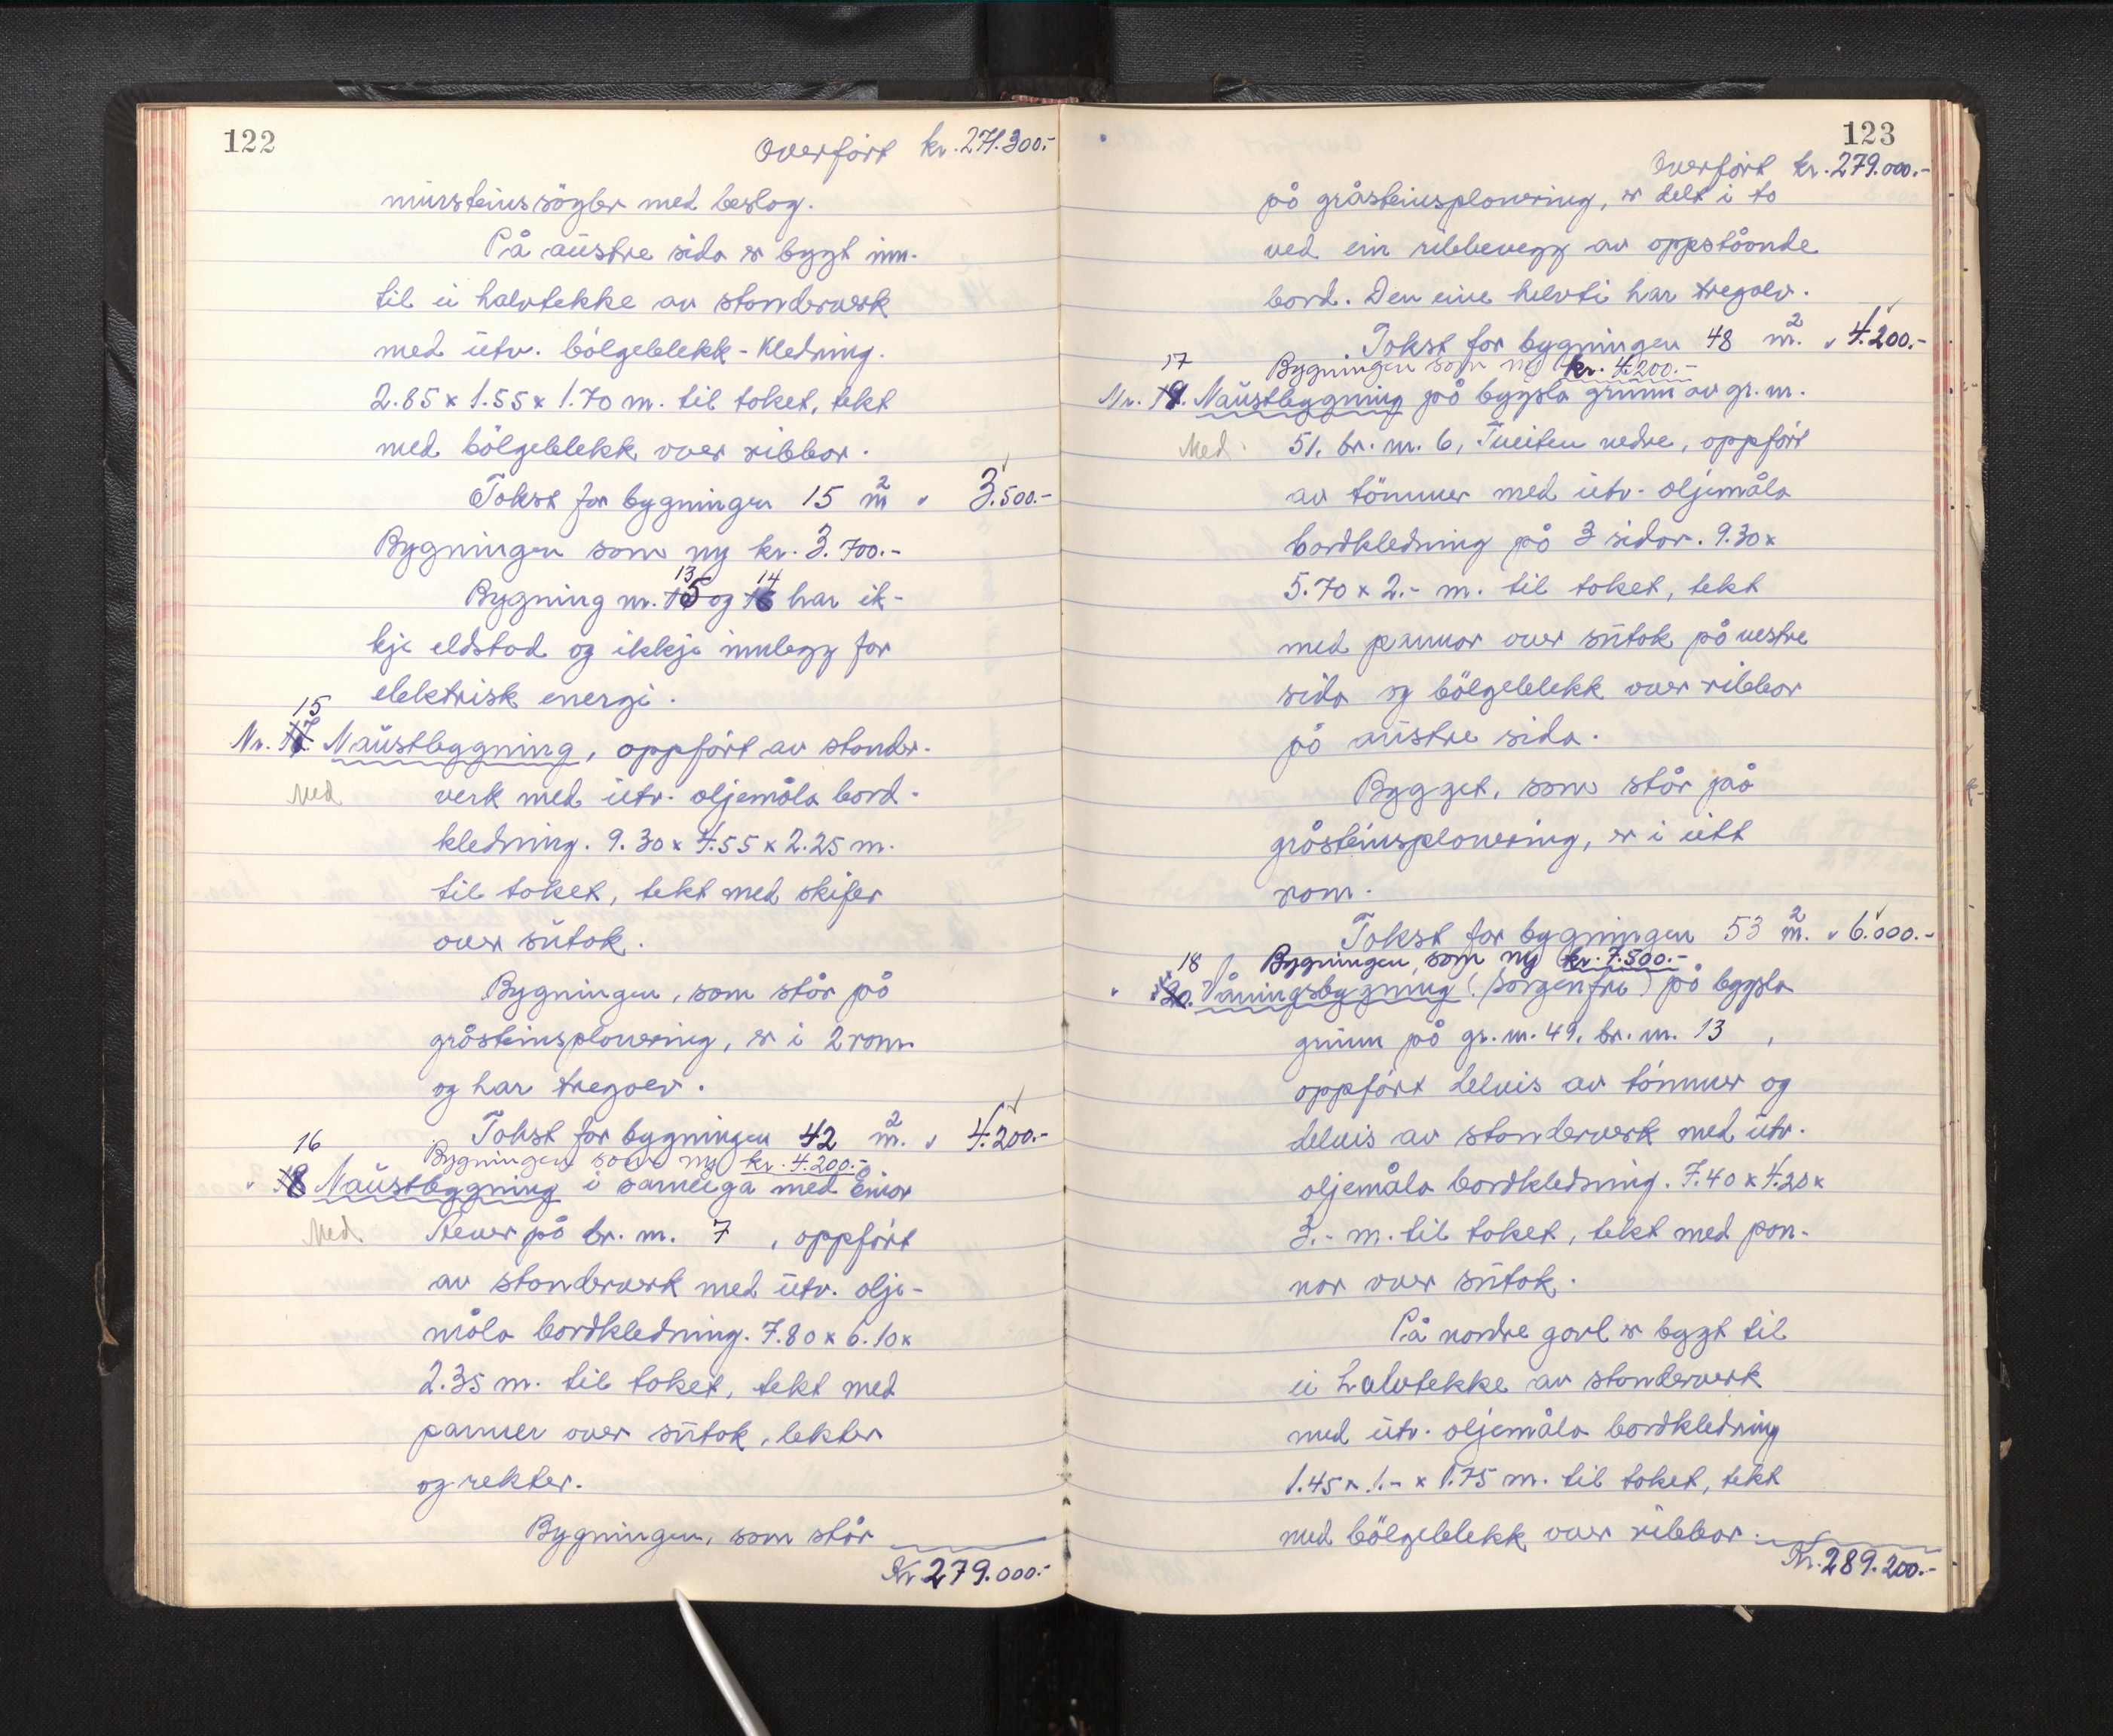 122
Overført kr. 271.300.-
mursteinssøyler med beslag.
På austre sida er bygt inn-
til ei halvtekke av standerverk
med utv. bølgeblekk-kledning.
2.85 x 1.55 x 1.70 m. til taket, tekt
med bølgeblekk over ribbor.
Takst for bygningen 15 m² " 3.500.-
Bygningen som ny kr. 3.700.-
13 14
Bygning nr. 15 og 16 har ik-
kje eldstad og ikkje innlegg for
elektrisk energi.
15
Nr. 17. Naustbyggning, oppført av stander-
Med verk med utv. oljemåla bord-
kledning. 9.30 x 4.55 x 2.25 m.
til taket, tekt med skifer
over sutak.
Bygningen, som står på
gråsteinsplanering, er i 2 rom
og har tregolv.
Takst for bygningen 42 m². " 4.200.-
16 Bygningen som ny kr. 4.200.-
" 18 Naustbyggning i sameiga med
Med. på br. nr. 7, oppført
av standerverk med utv. olje-
måla bordkledning. 7.80 x 6.10 x
2.35 m. til taket, tekt med
panner over sutak, lekter
og rekter.
Bygningen, som står
Kr 279.000.-
123
Overført kr. 279.000.-
på gråsteinsplanering, er delt i to
ved ein ribbevegg av oppståande
bord. Den eine helvti har tregolv.
Takst for bygningen 48 m². " 4.200.-
17 Bygningen som ny kr. 4.200.-
Nr. 19. Naustbyggning på bygsla grunn av gr. nr.
Med. 51, br. nr. 6, Tveiten nedre, oppført
av tømmer med utv. oljemåla
bordkledning på 3 sidor. 9.30 x
5.70 x 2.- m. til taket, tekt
med pannor over sutak på vestre
sida og bølgeblekk over ribbor
på austre sida.
Bygget, som står på
gråsteinsplanering, er i eitt
rom.
Takst for bygningen 53 m². " 6.000.-
18 Bygningen, som ny kr. 7.500.-
" 20. Våningsbygning (Sorgenfri) på bygsla
grunn på gr. nr. 49, br. nr. 13,
oppført delvis av tømmer og
delvis av standerverk med utv.
oljemåla bordkledning. 7.40 x 4.20 x
3.- m. til taket, tekt med pan-
nor over sutak.
På nordre gavl er bygt til
ei halvtekke av standerverk
med utv. oljemåla bordkledning
1.45 x 1.- x 1.75 m. til taket, tekt
med bølgeblekk over ribbor.
Kr. 289.200.-